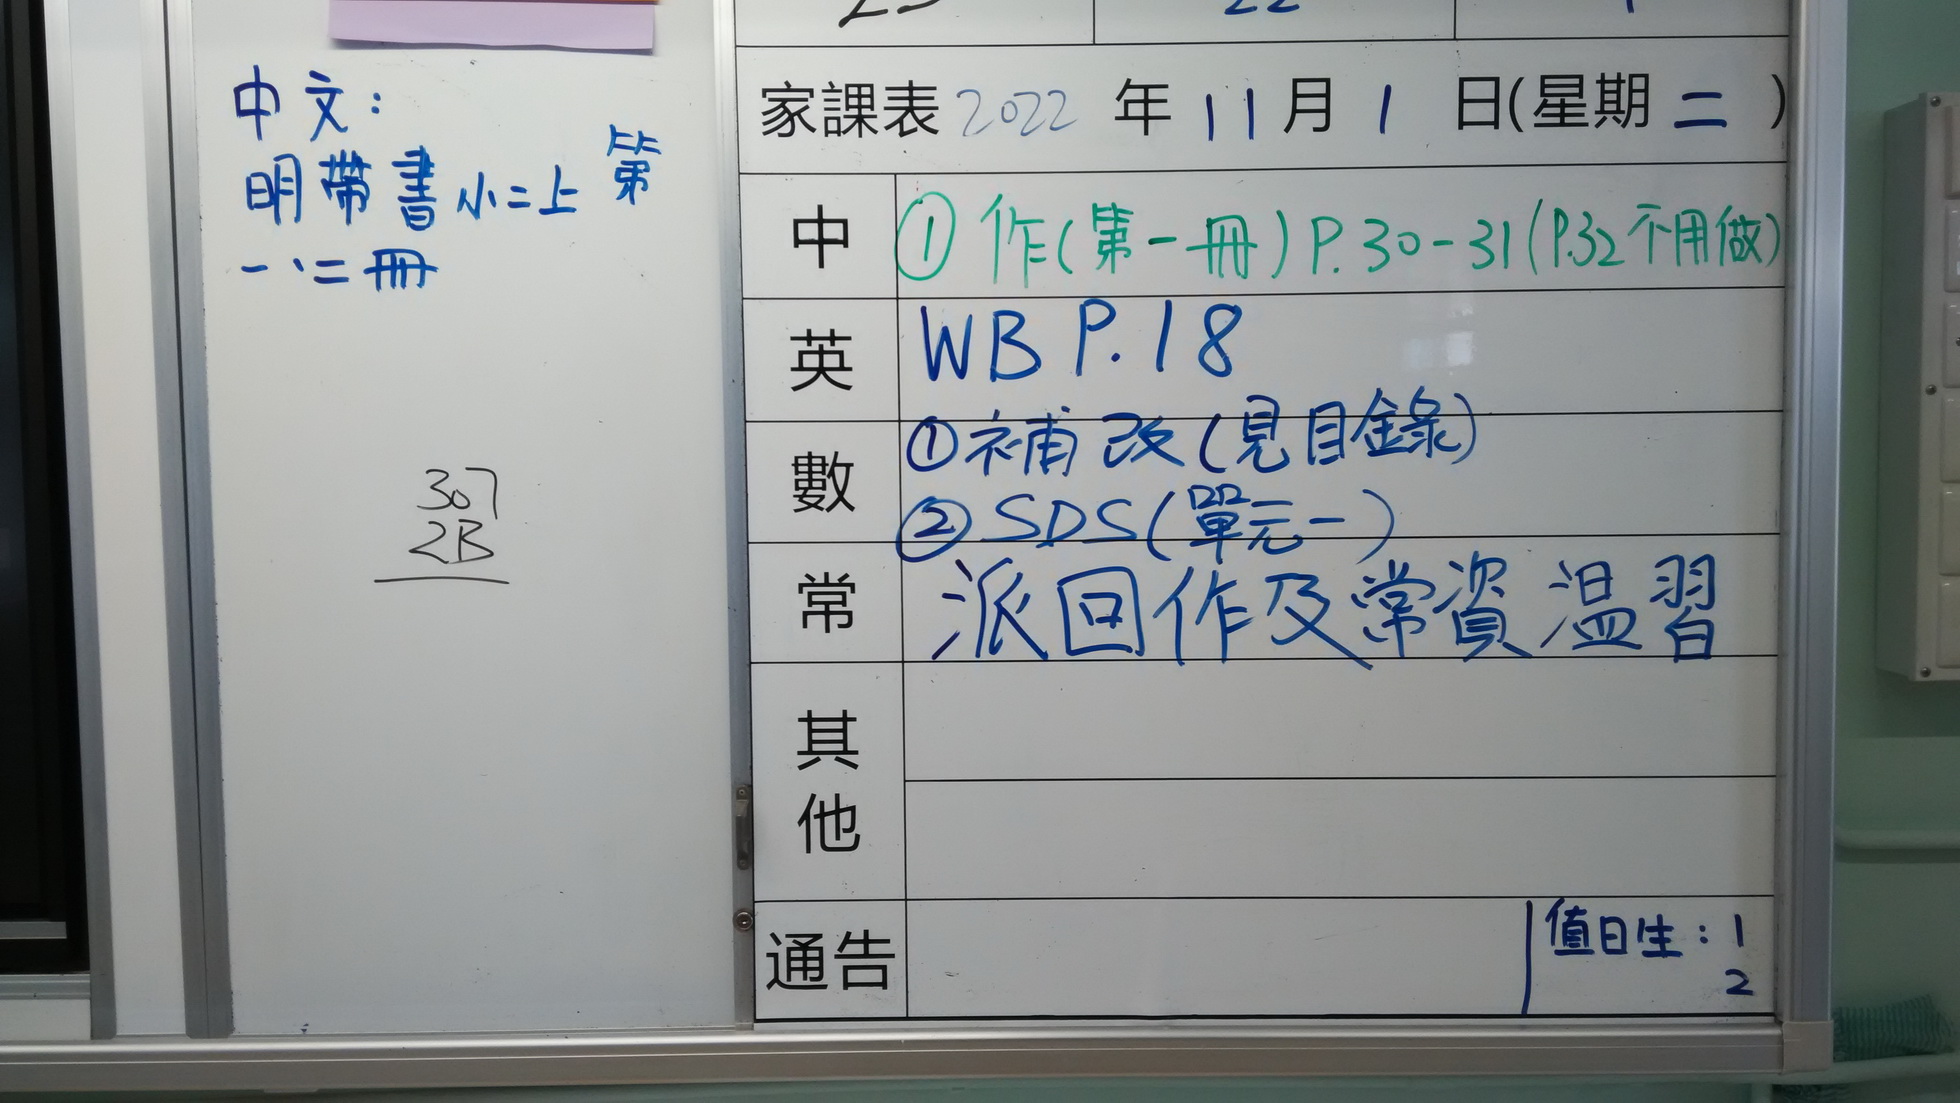 中文：
明帶書小二上 第
一、二冊
307
2B
家課表 2022 年 11 月 1 日(星期 二 )
中 ① 作(第一冊) P.30-31 (P.32 不用做)
英 WB P.18
數 ① 補改(見目錄)
② SDS(單元一)
常 派回作及常資温習
其他
通告 值日生：1
2